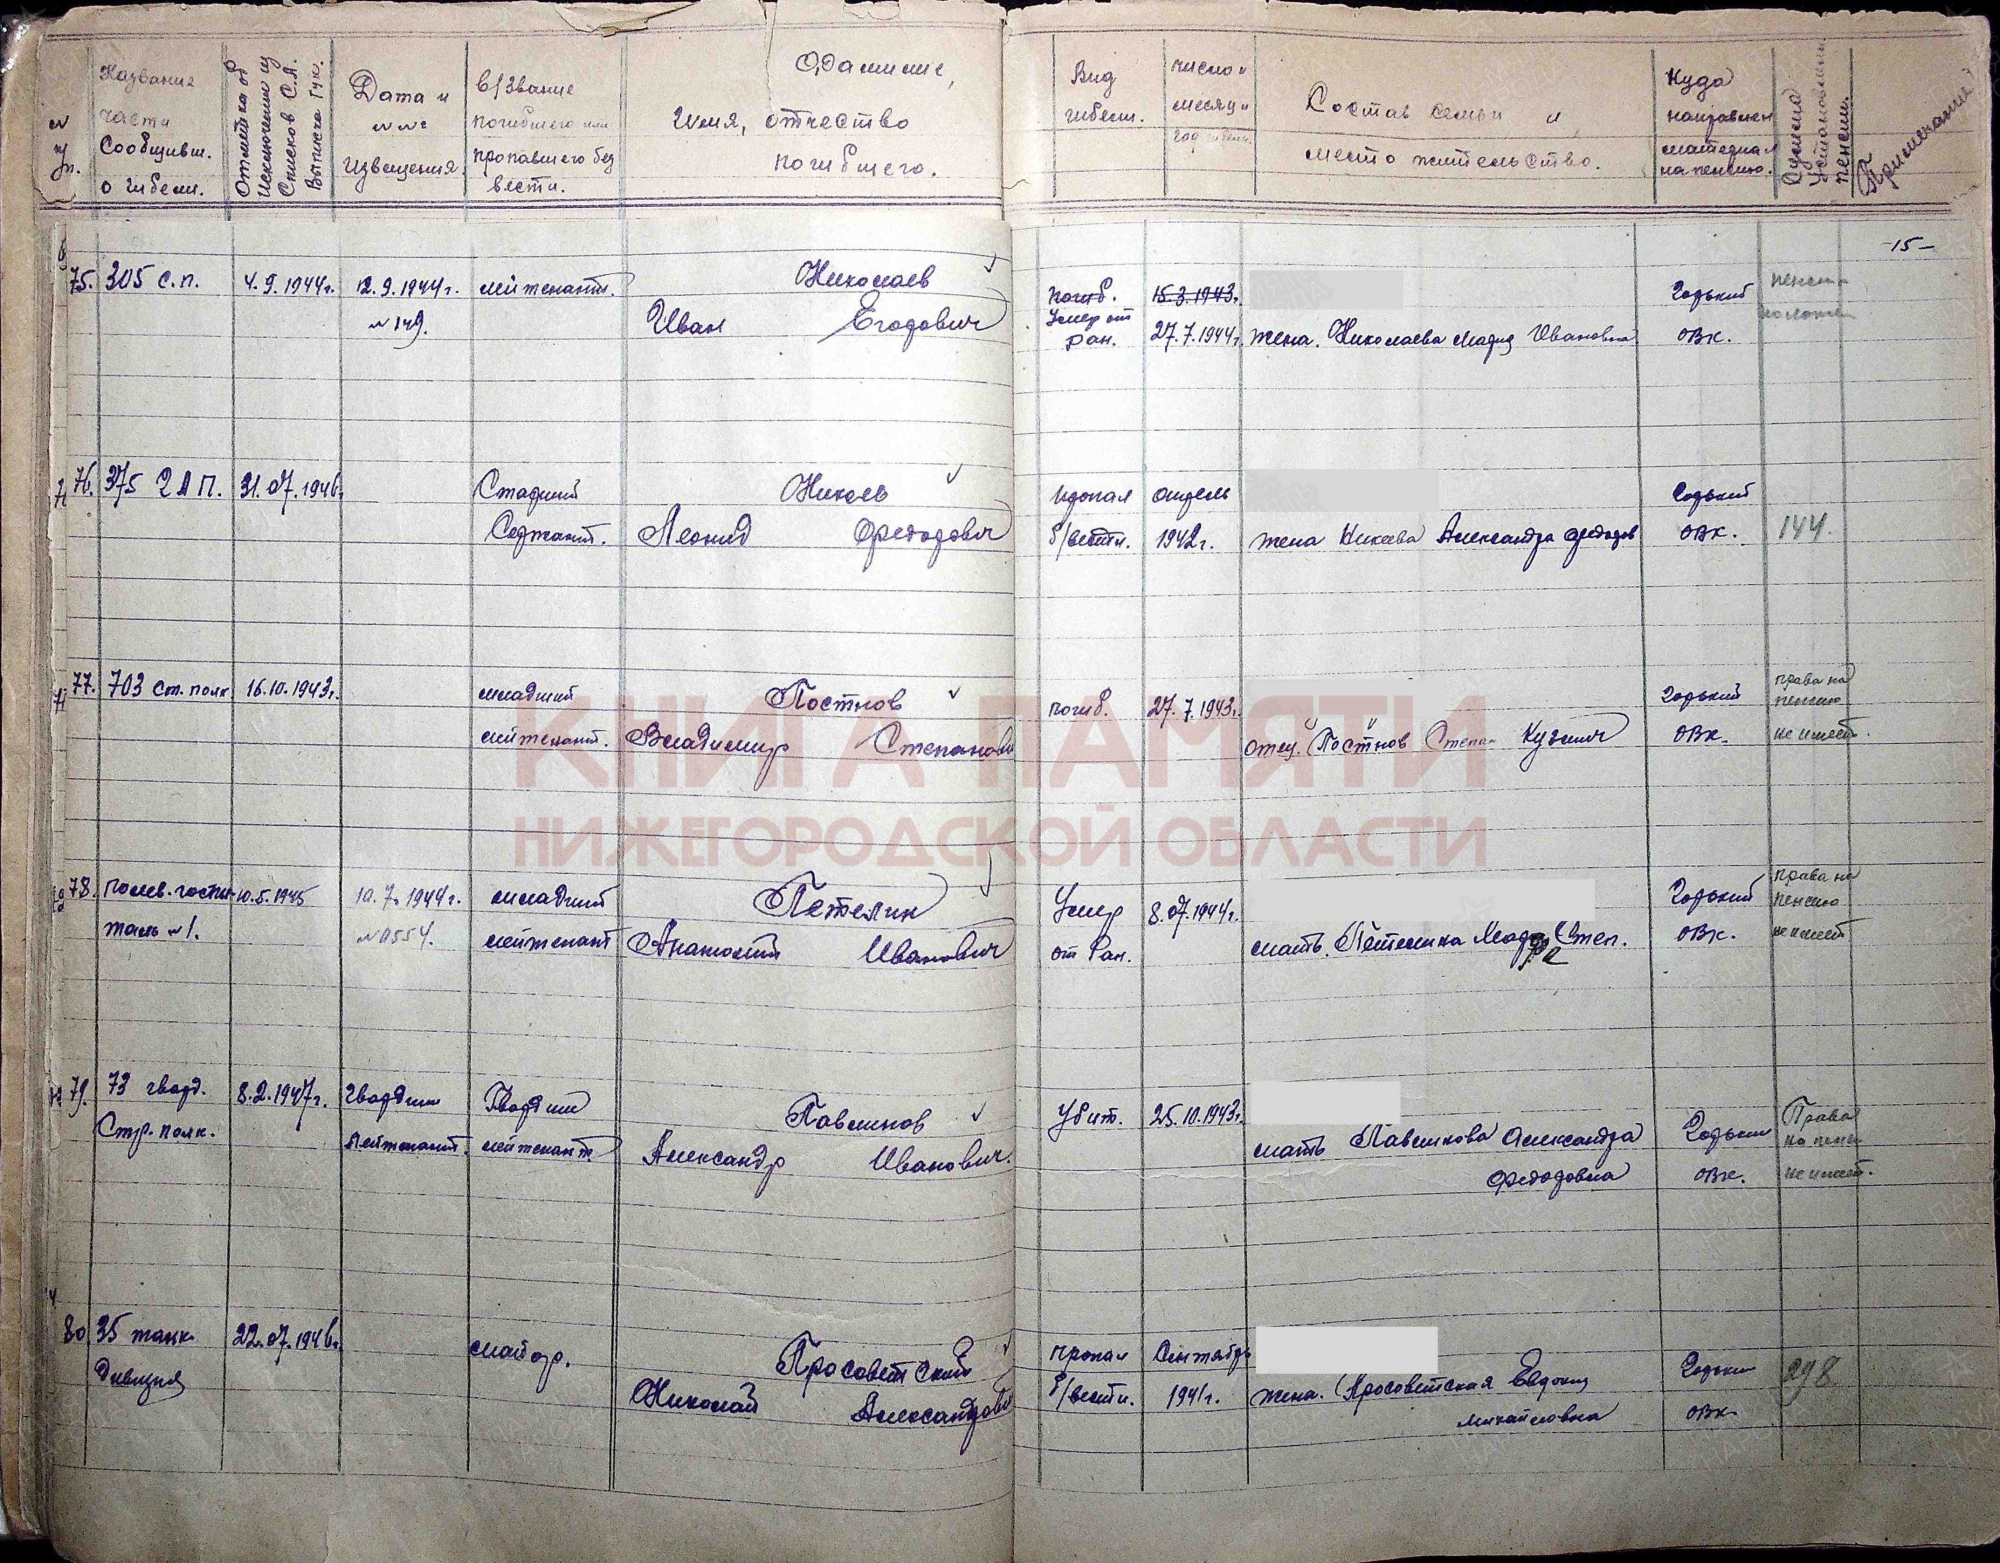 № п/п.
Название части Сообщивш. о гибели.
Отметка об Исключении из Списков С.А. Выписка ГУК.
Дата и №№ Извещения.
В/Звание погибшего или пропавшего без вести.
Фамилие, Имя, отчество погибшего.
Вид гибели.
число и месяц и год гибели.
Состав семьи и место жительство.
Куда направлен материал на пенсию.
Сумма Установленн. пенсии.
Примечание
-15-
75. 305 с.п. 4.9.1944г. 12.9.1944г. лейтенант. Николаев погиб. 15.3.1943г. Горький пенсии
№149. Иван Егорович Умер от ран. 27.7.1944г. жена. Николаева Мария Ивановна ОВК.
76. 375 ГАП. 31.07.1946г. Старший Никеев пропал апрель Горький
Сержант. Леонид Федорович б/вести. 1942г. жена Никеева Александра Федоров ОВК. 144.
77. 703 ст. полк 16.10.1943г. младший Постнов погиб. 27.7.1943г. Горький права на пенсию
лейтенант. Владимир Степанови отец. "Постнов" Степан Кузмич ОВК. не имеет.
КНИГА ПАМЯТИ
НИЖЕГОРОДСКОЙ ОБЛАСТИ
78. полев. госпи- 10.5.1945 10.7.1944г. младший Петелин Умер 8.07.1944г. Горький права на пенсию
таль №1. №0554. лейтенант Анатолий Иванович от Ран. мать. Петелина Мария Степ. ОВК. не имеет
79. 73 гвард. 8.2.1947г. Гвардии Гвардии Павлинов Убит. 25.10.1943г. Права
Стр. полк. Лейтенант. лейтенант. Александр Иванович. мать Павликова Александра Горький на пенс
Федоровна ОВК. не имеет.
80 35 танк. 22.07.1946г. майор. Просоветский пропал Сентябрь Горький 298
Дивизия Николай Александрови б/вести. 1941г. жена. Просоветская Евдокия
Михайловна ОВК.